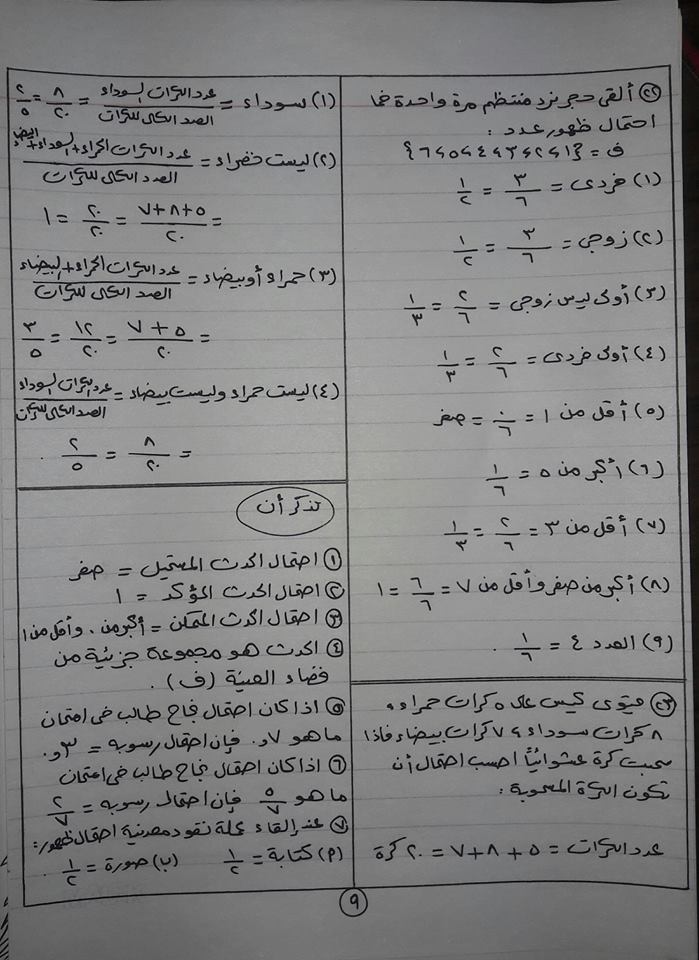 ٢٢ ألقى حجر نرد منتظم مرة واحدة فما
احتمال ظهور عدد :
ف = {١، ٢، ٣، ٤، ٥، ٦}
(١) فردى = ٣/٦ = ١/٢
(٢) زوجي = ٣/٦ = ١/٢
(٣) أولى ليس زوجي = ٢/٦ = ١/٣
(٤) أولى فردى = ٢/٦ = ١/٣
(٥) أقل من ١ = ٠/٦ = صفر
(٦) أكبر من ٥ = ١/٦
(٧) أقل من ٣ = ٢/٦ = ١/٣
(٨) أكبر من صفر وأقل من ٧ = ٦/٦ = ١
(٩) العدد ٤ = ١/٦ .
٢٣ يحتوى كيس على ٥ كرات حمراء ،
٨ كرات سوداء ، ٧ كرات بيضاء فاذا
سحبت كرة عشوائياً احسب احتمال أن
تكون الكرة المسحوبة :
عدد الكرات = ٥ + ٨ + ٧ = ٢٠ كرة
(١) سوداء = عدد الكرات السوداء / العدد الكلى للكرات = ٨/٢٠ = ٢/٥
(٢) ليست خضراء = عدد الكرات الحمراء + السوداء + البيضاء / العدد الكلى للكرات
= ٥ + ٨ + ٧ / ٢٠ = ٢٠/٢٠ = ١
(٣) حمراء أو بيضاء = عدد الكرات الحمراء + البيضاء / العدد الكلى للكرات
= ٥ + ٧ / ٢٠ = ١٢/٢٠ = ٣/٥
(٤) ليست حمراء وليست بيضاء = عدد الكرات السوداء / العدد الكلى للكرات
= ٨/٢٠ = ٢/٥ .
تذكر أن
١ احتمال الحدث المستحيل = صفر
٢ احتمال الحدث المؤكد = ١
٣ احتمال الحدث الممكن = أكبر من ٠ وأقل من ١
٤ الحدث هو مجموعة جزئية من
فضاء العينة (ف) .
٥ اذا كان احتمال نجاح طالب فى امتحان
ما هو ٧,٠ فإن احتمال رسوبه = ٣,٠
٦ اذا كان احتمال نجاح طالب فى امتحان
ما هو ٥/٧ فإن احتمال رسوبه = ٢/٧
٧ عند إلقاء عملة نقود معدنية احتمال ظهور :
(٢) كتابة = ١/٢ (ب) صورة = ١/٢ .
٩